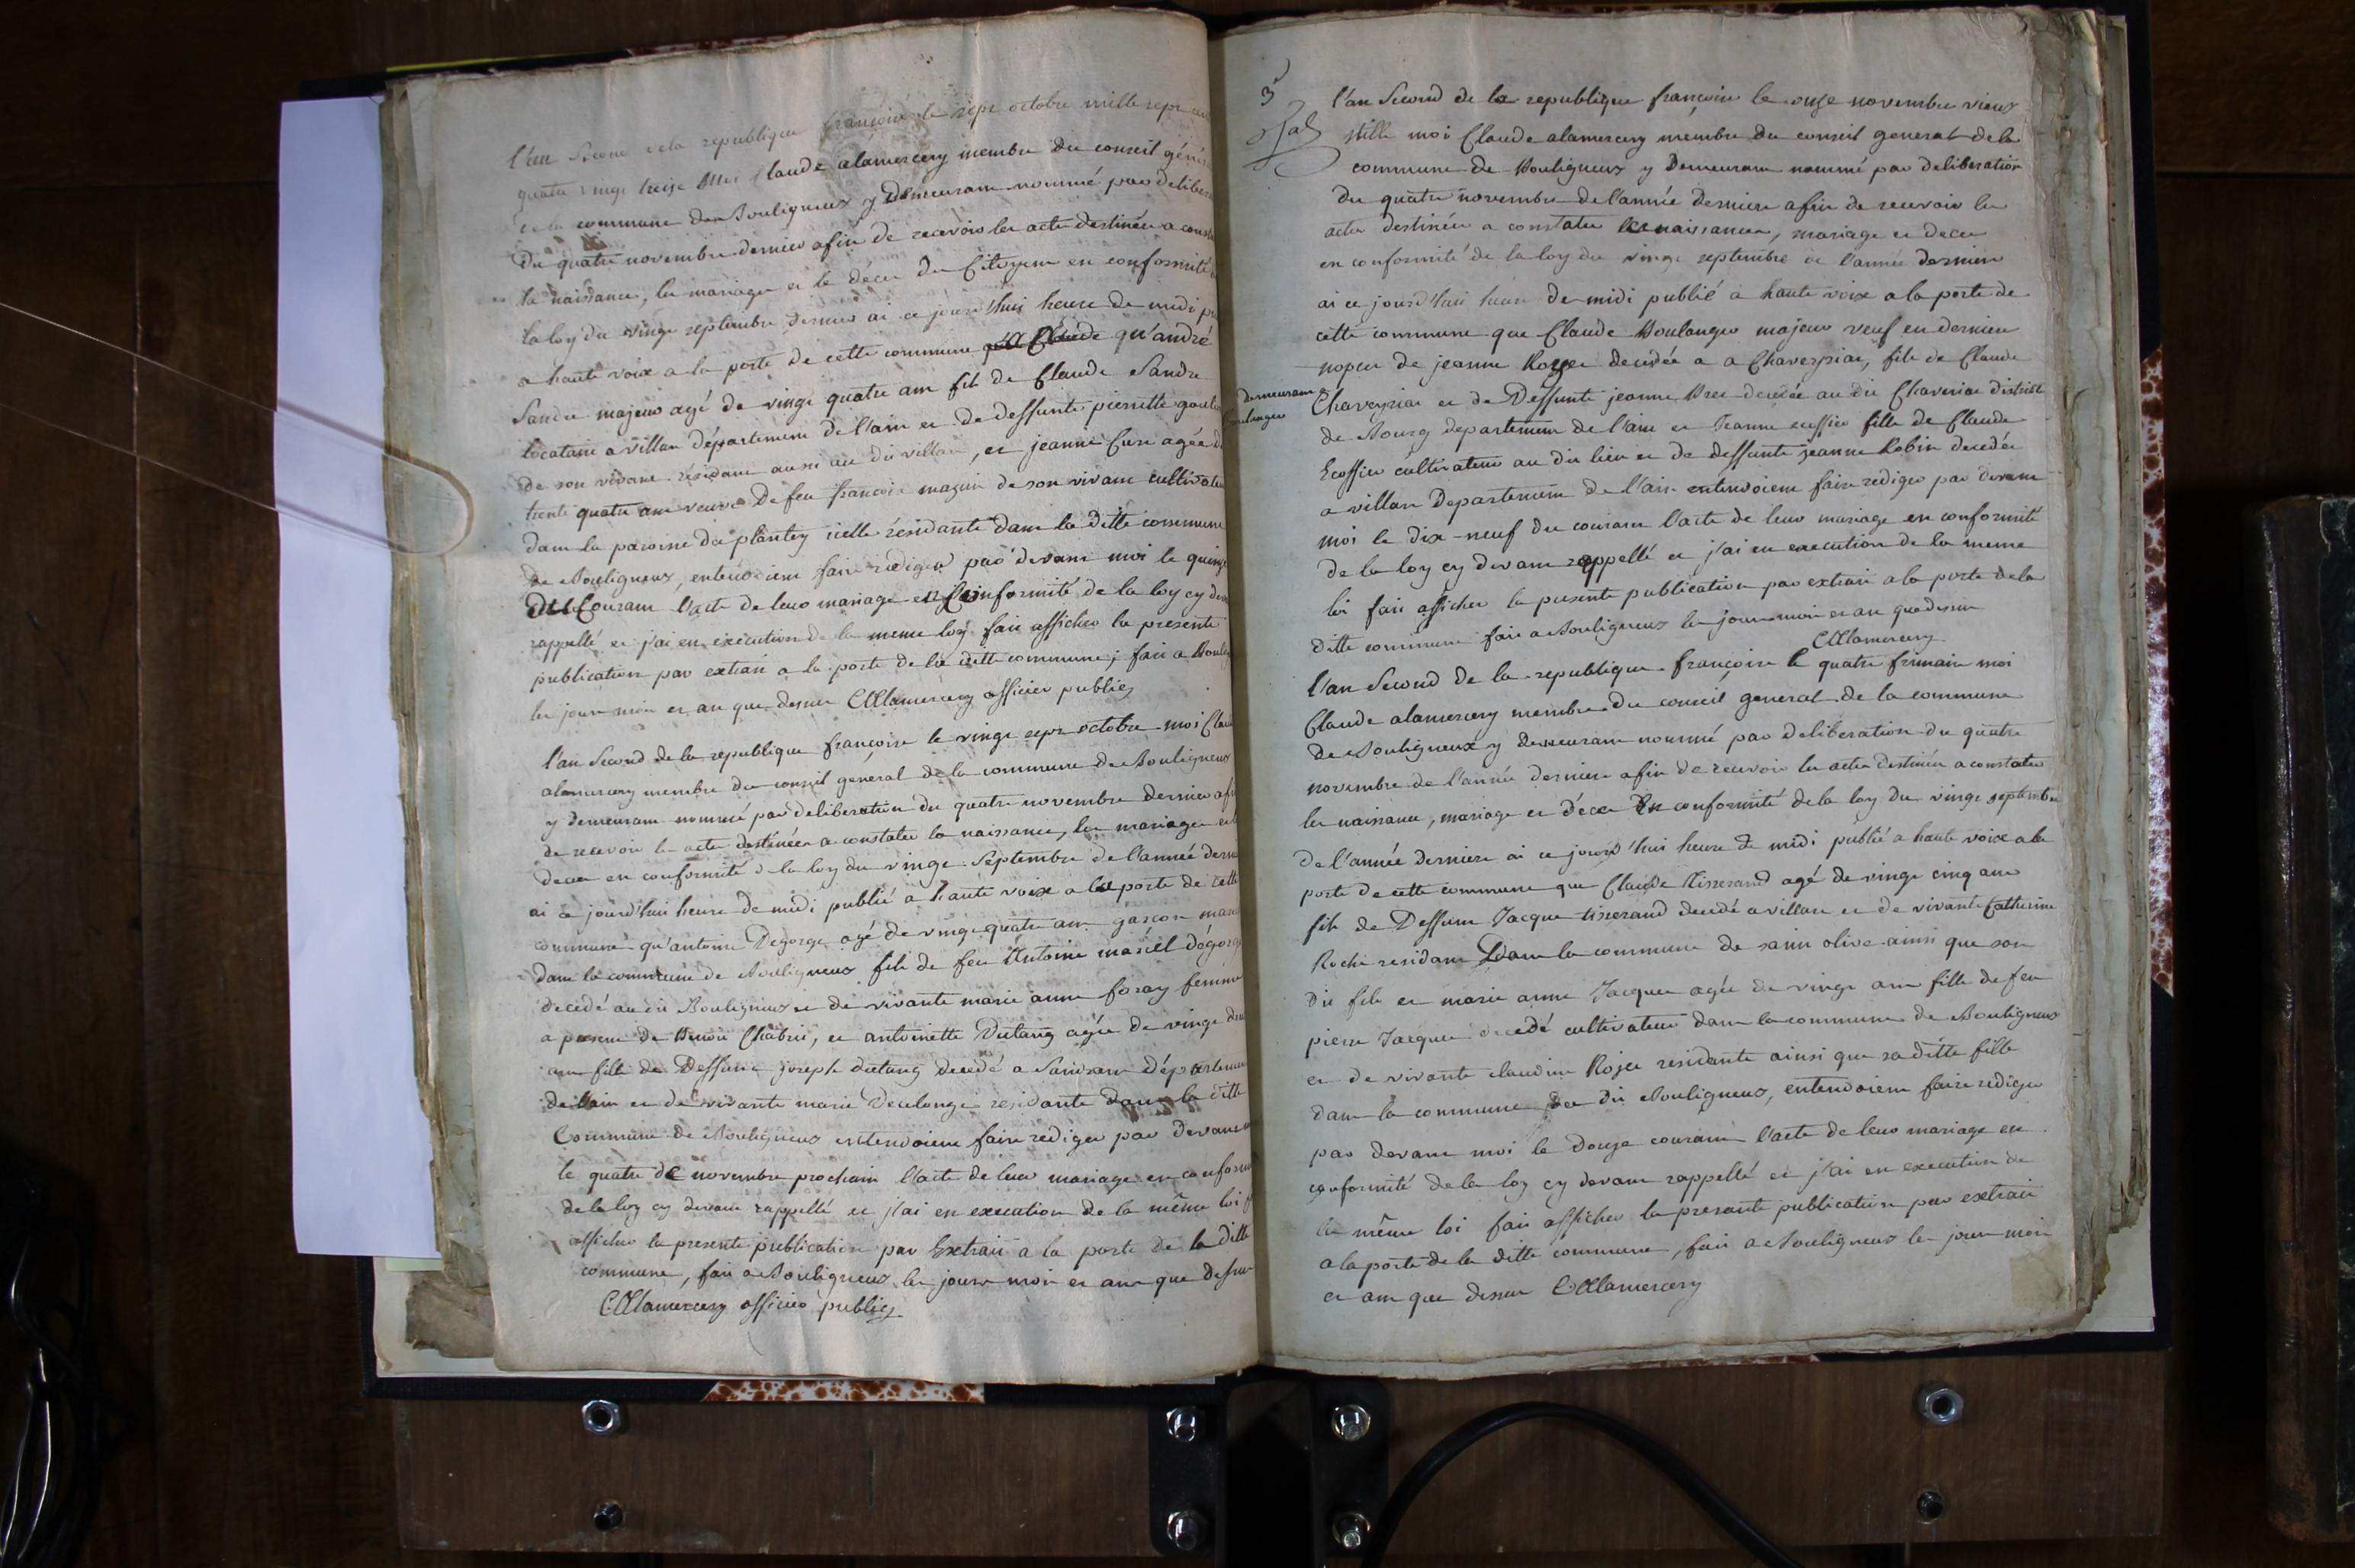 l'an second de la republique françoise le sept octobre mille sept cent
quatre vingt treize moi Claude alamercery membre du conseil géné
de la commune de Bouligneux y demeurant nommé par delibera
du quatre novembre dernier afin de recevoir les acte destinées a const
la naissance, les mariages et le décès du Citoyens en conformité
la loy du vingt septembre dernier ai ce jourd'hui heure de midi p
a haute voix a la porte de cette commune qu'andré
Sandre majeur agé de vingt quatre ans fils de Claude Sandre
locataire a villar département de l'ain et de deffunte pierrette
de son vivant résidante aussi au dit villars, et jeanne Cure agée de
trente quatre ans veuve de feu françois mazuir de son vivant cultivateu
dans la paroisse du plantey icelle résidante dans la ditte commune
de Bouligneux, entendoient faire rediger par devant moi le quinz
du Courant l'acte de leur mariage en Conformité de la loy cy dev
rappellé et j'ai en exécution de la meme loy fait afficher la presente
publication par extrait a la porte de la ditte commune; fait a Boulig
les jour mois et an que dessus CAlamercery officier public
l'an second de la republique françoise le vingt sept octobre moi Clau
alamercery membre du conseil general de la commune de Bouligneux
y demeurant nommé par deliberation du quatre novembre dernier afi
de recevoir les acte destinées a constater la naissance, les mariages et l
deces en conformité de la loy du vingt Septembre de l'année derni
ai ce jourd'hui heure de midi publié a haute voix a la porte de cette
commune qu'antoine Degorge agé de vingt quatre ans garcon
dans la commune de Bouligneux fils de feu Antoine marcel dégorge
decedé au dit Bouligneux et de vivante marie anne foray femme
a present de Benoit Chabrié, et antoinette Dutang agée de vingt deu
ans fille de Deffunt joseph dutang decedé a département
de l'ain et de vivante marie residante dans la ditte
Commune de Bouligneux entendoient faire rediger par devant m
le quatre de novembre prochain l'acte de leur mariage en conform
de la loy cy devant rappellé et j'ai en execution de la même loi f
afficher la presente publication par Extrait a la porte de la ditte
commune, fait a Bouligneux les jours mois et ans que dessus
CAlamercery officier public
3
l'an second de la republique françoise le onze novembre vieux
stille moi Claude alamercery membre du conseil general de la
commune de Bouligneux y Demeurant nommé par deliberation
du quatre novembre de l'année derniere afin de recevoir les
actes destinées a constater les naissances, mariage et deces
en conformité de la loy du vingt septembre de l'année derniere
ai ce jourd'hui heure de midi publié a haute voix a la porte de
cette commune que Claude Boulanger majeur veuf en derniere
nopces de jeanne Royer decedée a a Chaveyriat, fils de Claude
demeurant a
boulanger
Chaveyriat et de Deffunte jeanne decedée au dit Chaveriat district
de Bourg departement de l'ain et Jeanne fille de Claude
Ecossier cultivateur au dit lieu et de deffunte jeanne Robin decedée
a villars Departement de l'ain entendoient faire rediger par devant
moi le dix-neuf du courant l'acte de leur mariage en conformité
de la loy cy devant rappellé et j'ai en execution de la meme
loi fait afficher la presente publication par extrait a la porte de la
ditte commune fait a Bouligneux les jour mois et an que dessus
CAlamercery
l'an Second de la republique françoise le quatre frimaire moi
Claude alamercery membre du conseil general de la commune
de Bouligneux y demeurant nommé par deliberation du quatre
novembre de l'année derniere afin de recevoir les actes destinées a constater
les naissance, mariage et déces En conformité de la loy du vingt septembre
de l'année derniere ai ce jourd'hui heure de midi publié a haute voix a la
porte de cette commune que Claude tisserand agé de vingt cinq ans
fils de Deffunt Jacque tisserand decedé a villars et de vivante Catherine
Roche residant Dans la commune de saint olive ainsi que son
dit fils et marie anne Jacquet agée de vingt ans fille de feu
pierre Jacquet decedé cultivateur dans la commune de Bouligneux
et de vivante claudine Rojer residante ainsi que sa ditte fille
dans la commune du dit Bouligneux, entendoient faire rediger
par devant moi le douze courant l'acte de leur mariage en
conformité de la loy cy devant rappellé et j'ai en execution de
la même loi fait afficher la presante publication par extrait
a la porte de la ditte commune, fait a Bouligneux les jour mois
et an que dessus CAlamercery